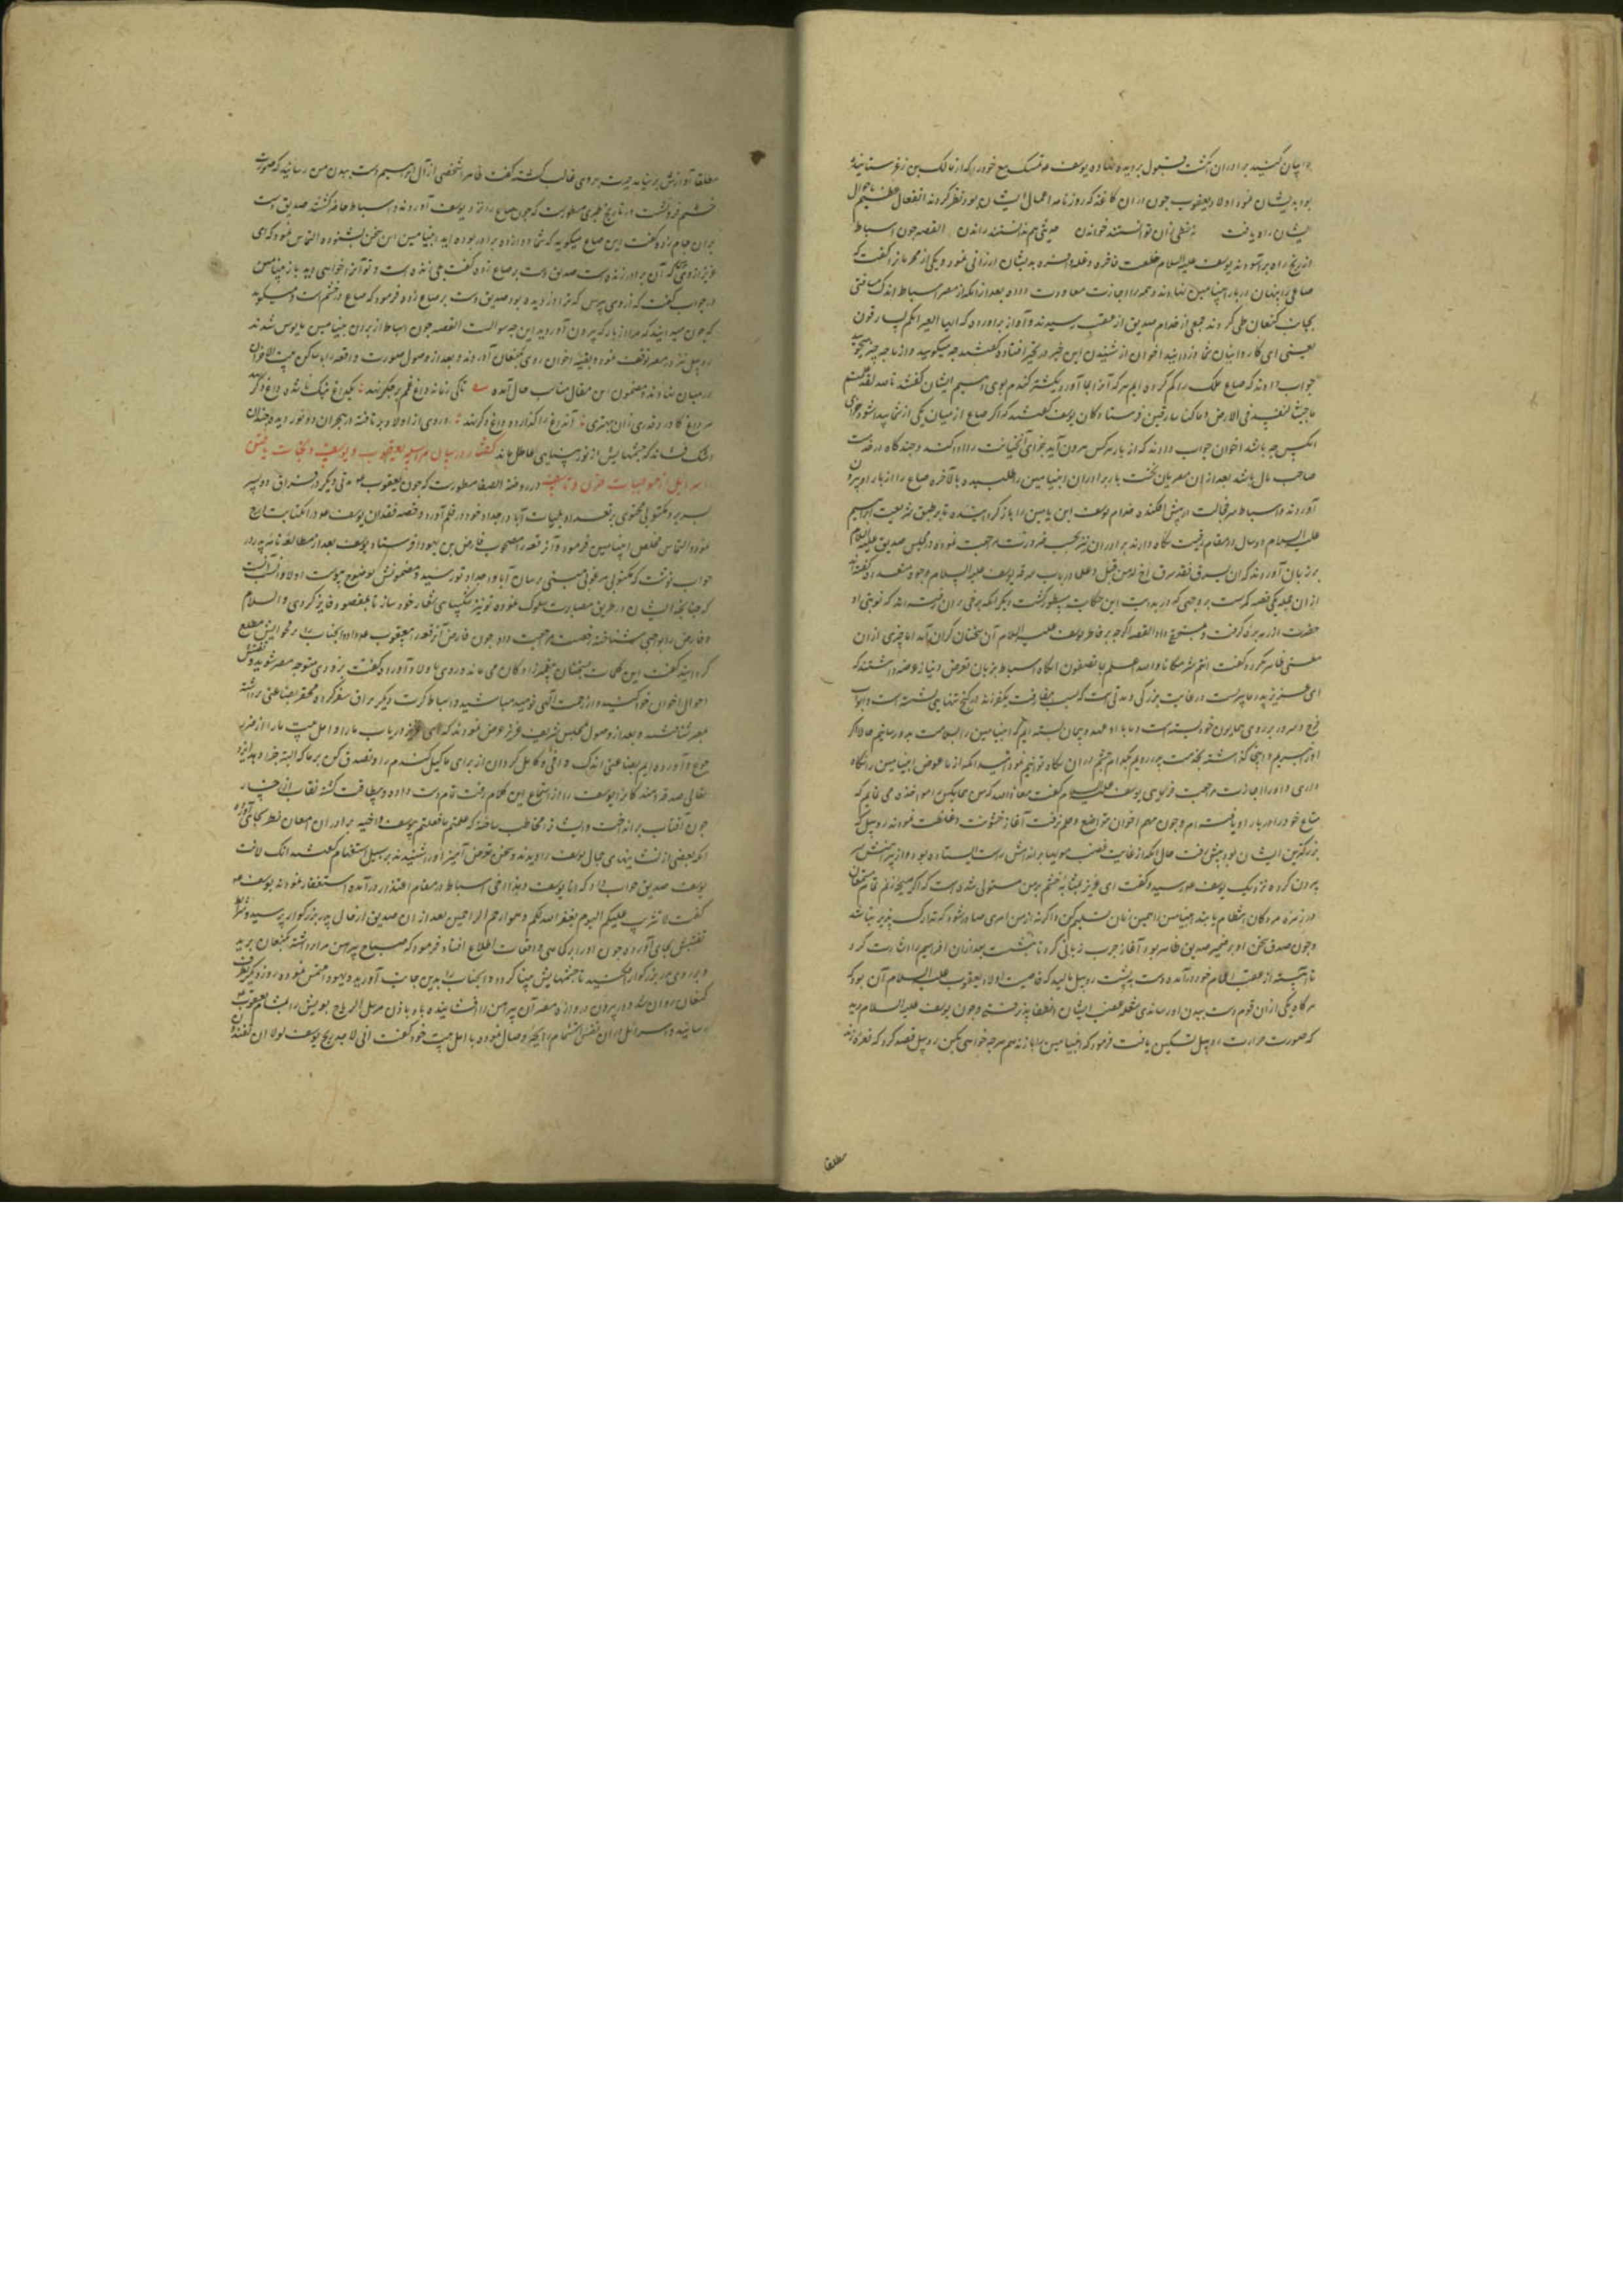 را بیان کنید برادران انگشت قبول بر دیده نهاده یوسف تمسک بیع خود را که از مالک بن زعر ستانیده
بود بدیشان نمود اولاد یعقوب چون در آن کاغذ که روزنامه اعمال ایشان بود نظر کردند انفعال عظیم باحوال
ایشان راه یافت نه خطی زان توانستند خواندن نه پیشی هم توانستند راندن القصه چون اسباط
از رنج راه برآسودند یوسف علیه السلام خلعت فاخره و غله وافره بدیشان ارزانی نمود و یکی از محرمانرا گفت که
صاع را پنهان در بار ابنیامین نهادند و همه را اجازت معاودت داده بعد از آنکه از مصر اسباط اندک مسافتی
بجانب کنعان طی کردند جمعی از خدام صدیق از عقب رسیدند و آواز برآوردند که ایها العیر انکم لسارقون
یعنی ای کاروانیان شما دزدانید اخوان از شنیدن این خبر در تحیر افتاده گفتند چه میگویید و از ما چه چیز میجویید
جواب دادند که صاع ملک را گم کرده ایم هر که آنرا بجا آورد یکشتر گندم بوی دهیم ایشان گفتند تالله لقد علمتم
ما جئنا لنفسد فی الارض و ما کنا سارقین فرستادگان یوسف گفتند که اگر صاع از میان یکی از شما پیدا شود جزای
آنکس چه باشد اخوان جواب دادند که از بار هر کس بیرون آید بجزای آن خیانت او را بنده کنند و چندگاه در خدمت
صاحب مال باشد بعد از آن مصریان نخست بار برادران ابنیامین را طلبیده بالآخره صاع را از بار او بیرون
آوردند و اسباط سر خجالت در پیش افکنده خدام یوسف ابن یامین را باز گردانیدند تا بر طبق شریعت ابراهیم
علیه السلام دو سال در مقام رقیت نگاه دارند برادران نیز بحسب ضرورت مراجعت نموده در مجلس صدیق علیه السلام
بر زبان آوردند که ان یسرق فقد سرق اخ له من قبل و علما در باب سرقه یوسف علیه السلام وجوه متعدد گفته اند
از آن جمله یکی قصه کمرست بر وجهی که در بدایت این حکایت مسطور گشت دیگر آنکه
حضرت القصه اگر چه بر خاطر یوسف علیه السلام آن سخنان گران آمد اما چیزی از آن
معنی ظاهر نکرد و گفت انتم شر مکانا والله اعلم بما تصفون آنگاه اسباط بزبان تضرع و نیاز عرضه داشتند که
ای عزیز پدر ما پیریست در غایت بزرگی و مدتی است که بسبب مفارقت یک فرزند در کنج تنهایی نشسته است و ابواب
فرح و سرور بر روی همایون خود بسته است و ما با او عهد و پیمان بسته ایم که ابنیامین را بسلامت بدو رسانیم حالا اگر
او را نبریم و اینجا گذاشته بخدمت پدر رویم بکدام چشم در آن نگاه توانیم نمود امید آنکه از ما عوض ابنیامین را نگاه
داری و او را اجازت مراجعت فرمایی یوسف علیه السلام گفت معاذ الله که من بجای کس مواخذه می نمایم که
متاع خود را در بار او یافته ام و چون مهم اخوان بتواضع و حلم نرفت آغاز خشونت و غلظت نمودند روبیل که
بزرگترین ایشان بود پیش رفت حال آنکه از غایت غضب مویها بر اندامش راست ایستاده بود و از پیراهنش سر
بیرون کرده نزدیک یوسف رسید و گفت ای عزیز بمثابه خشم بر من مستولی شده است که اگر صیحه زنم تمام مستمعان
در زمره مردگان انتظام یابند ابنیامین را همین زمان تسلیم کن و اگر نه از من امری صادر شود که تدارک پذیر نباشد
و چون صدق سخن او بر ضمیر صدیق ظاهر بود آغاز چرب زبانی کرد تا بنشست بعد از آن افراهیم را اشارت کرد
تا آهسته از عقب اعمام خود درآمده دست به پشت روبیل مالید که خاصیت اولاد یعقوب علیه السلام آن بود که
هر گاه یکی از آن قوم دست ببدن او رساندی شعله غضب ایشان انطفا پذیرفتی و چون یوسف علیه السلام دید
که صورت حرارت روبیل تسکین یافت فرمود که ابنیامین را باز ندهم هر چه خواهی بکن روبیل قصد کرد که نعره زند
مطلقا
مطلقا آوازش بر نیامد حیرت بر وی غالب گشته گفت ظاهرا شخصی از آل ابراهیم دست ببدن من رسانید که صورت
خشم فرو نشست در تاریخ طبری مسطورست که چون صاع را نزد یوسف آوردند و اسباط حاضر گشتند صدیق دست
بر آن جام زده گفت این صاع میگوید که شما دوازده برادر بوده اید ابنیامین این سخن بشنوده التماس نمود که ای
عزیز از وی که آن برادر زنده است صدیق دست بر صاع زده گفت بلی زنده است و تو آنرا خواهی دید باز بنیامین
در جواب گفت که از وی بپرس که مرا دزدیده بود صدیق دست بر صاع زده فرمود که صاع در خشم است و میگوید
که چون میدانید که مرا از بار که بیرون آوردید این چه سوالست القصه چون اسباط از بردن بنیامین مایوس شدند
روبیل نیز در مصر توقف نمود و بقیه اخوان روی بکنعان آوردند و بعد از وصول صورت واقعه را با ساکن بیت الاحزان
در میان نهادند و مضمون این مقال مناسب حال آمده تا کی زمانه داغ غمم بر جگر نهد یکداغ نیک ناشده داغ دگر نهد
هر داغ کاورد قدری زان بهتری آن داغ را گذارد و داغ دگر نهد و روی از اولاد بر تافته در هجران دو نور دیده چندان
اشک فشاند که چشمهایش از نور بینایی عاطل ماند گفتار در بیان مراسله یعقوب و یوسف و نجات یافتن
اسرائیل از موجبات حزن و تاسف در روضة الصفا مسطورست که چون یعقوب مدتی دیگر در فراق دو پسر
بسر برد مکتوبی محتوی بر تعداد بلیات آبا و اجداد خود در قلم آورد و قصه فقدان یوسف در آن کتابت درج
نموده التماس مخلص ابنیامین فرمود و آن رقعه را مصحوب فارض بن یهودا فرستاد و یوسف بعد از مطالعه نامه پدر
جواب نوشت که مکتوب مرغوب مبنی بر سان آبا و اجداد تو رسید و مضمونش بوضوح پیوست اولا و انسب آنست
که چنانچه ایشان در طریق مصابرت سلوک نموده تو نیز شکیبایی شعار خود ساز تا بمقصود فایز گردی والسلام
و فارض را بوجهی شناخته رخصت مراجعت داد چون فارض آن رقعه را بیعقوب داد و آنجناب را بر فحوایش مطلع
گردانید گفت این کلمات بسخنان پیغمبرزادگان می ماند و روی باولاد آورد گفت بزودی متوجه مصر شوید و تفتیش
احوال اخوان خود کنید و از رحمت الهی نومید مباشید و اسباط کرت دیگر یراق سفر کرده محقر بضاعتی برداشته
بمصر شتافتند و بعد از وصول بمجلس شریف عزیز عرض نمودند که ای عزیز دریاب ما را و اهل بیت ما را از ضرر
جوع و آورده ایم بضاعتی اندک وافی و کامل گردان از برای ما کیل گندم را و تصدق کن بر ما که البته جزا دهد ایزد
تعالی صدقه دهندگانرا یوسف را از استماع این کلام رقت تمام دست داده و بیطاقت گشته نقاب از رخسار
چون آفتاب برانداخت و ایشانرا مخاطب ساخته که هل علمتم ما فعلتم بیوسف و اخیه برادران امعان نظر بجای آورده
آنکه بعضی از نشانیهای جمال یوسف را دیدند و سخن تعرض آمیز او را شنیدند بر سبیل استفهام گفتند ائنک لانت
یوسف صدیق جواب داد که انا یوسف و هذا اخی اسباط در مقام اعتذار درآمده استغفار نمودند یوسف
گفت لا تثریب علیکم الیوم یغفر الله لکم و هو ارحم الراحمین بعد از آن صدیق از حال پدر بزرگوار پرسید و شرایط
تفتیش بجای آورده چون او را بر کماهی واقعات اطلاع افتاد فرمود که صباح پیراهن مرا برداشته بکنعان برید
و بر روی پدر بزرگوار افکنید تا چشمهایش بینا گردد و آنجناب را بدین جانب آورید و یهودا ملتمس نموده روز دیگر بطرف
کنعان روان شد و در بیرون دروازه مصر آن پیراهن را افشانیده باد باذن مرسل الریاح بویش را بمشام یعقوب
رسانید و اسرائیل از آن نفس استشمام رایحه وصال نموده با اهل بیت خود گفت انی لاجد ریح یوسف لولا ان تفندون